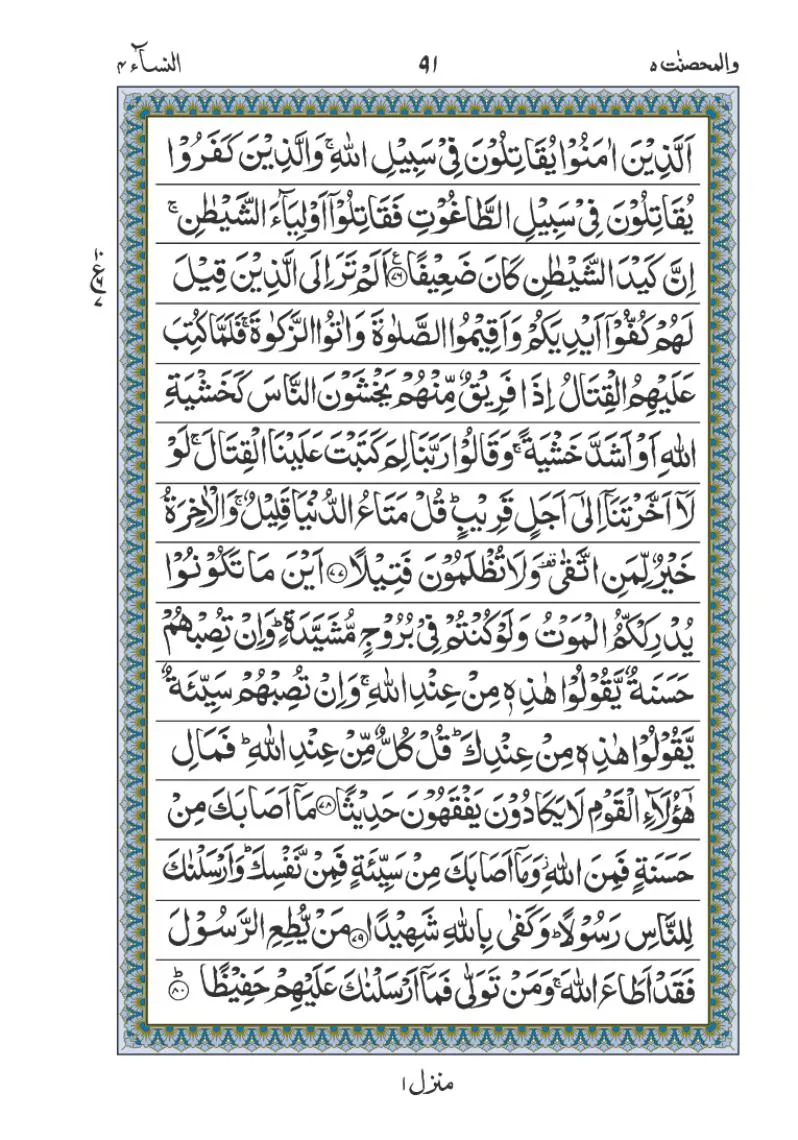 والمحصنٰت ٥ ٩١ النسآء ٤
اَلَّذِيْنَ اٰمَنُوْا يُقَاتِلُوْنَ فِيْ سَبِيْلِ اللّٰهِ ۚ وَالَّذِيْنَ كَفَرُوْا
يُقَاتِلُوْنَ فِيْ سَبِيْلِ الطَّاغُوْتِ فَقَاتِلُوْۤا اَوْلِيَآءَ الشَّيْطٰنِ ۚ
اِنَّ كَيْدَ الشَّيْطٰنِ كَانَ ضَعِيْفًا ﴿٧٦﴾ اَلَمْ تَرَ اِلَى الَّذِيْنَ قِيْلَ
لَهُمْ كُفُّوْۤا اَيْدِيَكُمْ وَاَقِيْمُوا الصَّلٰوةَ وَاٰتُوا الزَّكٰوةَ ۚ فَلَمَّا كُتِبَ
عَلَيْهِمُ الْقِتَالُ اِذَا فَرِيْقٌ مِّنْهُمْ يَخْشَوْنَ النَّاسَ كَخَشْيَةِ
اللّٰهِ اَوْ اَشَدَّ خَشْيَةً ۚ وَقَالُوْا رَبَّنَا لِمَ كَتَبْتَ عَلَيْنَا الْقِتَالَ ۚ لَوْ
لَاۤ اَخَّرْتَنَاۤ اِلٰۤى اَجَلٍ قَرِيْبٍ ؕ قُلْ مَتَاعُ الدُّنْيَا قَلِيْلٌ ۚ وَالْاٰخِرَةُ
خَيْرٌ لِّمَنِ اتَّقٰى ۟ وَلَا تُظْلَمُوْنَ فَتِيْلًا ﴿٧٧﴾ اَيْنَ مَا تَكُوْنُوْا
يُدْرِكْكُّمُ الْمَوْتُ وَلَوْ كُنْتُمْ فِيْ بُرُوْجٍ مُّشَيَّدَةٍ ؕ وَاِنْ تُصِبْهُمْ
حَسَنَةٌ يَّقُوْلُوْا هٰذِهٖ مِنْ عِنْدِ اللّٰهِ ۚ وَاِنْ تُصِبْهُمْ سَيِّئَةٌ
يَّقُوْلُوْا هٰذِهٖ مِنْ عِنْدِكَ ؕ قُلْ كُلٌّ مِّنْ عِنْدِ اللّٰهِ ؕ فَمَالِ
هٰۤؤُلَآءِ الْقَوْمِ لَا يَكَادُوْنَ يَفْقَهُوْنَ حَدِيْثًا ﴿٧٨﴾ مَاۤ اَصَابَكَ مِنْ
حَسَنَةٍ فَمِنَ اللّٰهِ ۫ وَمَاۤ اَصَابَكَ مِنْ سَيِّئَةٍ فَمِنْ نَّفْسِكَ ؕ وَاَرْسَلْنٰكَ
لِلنَّاسِ رَسُوْلًا ؕ وَكَفٰى بِاللّٰهِ شَهِيْدًا ﴿٧٩﴾ مَنْ يُّطِعِ الرَّسُوْلَ
فَقَدْ اَطَاعَ اللّٰهَ ۚ وَمَنْ تَوَلّٰى فَمَاۤ اَرْسَلْنٰكَ عَلَيْهِمْ حَفِيْظًا ﴿٨٠﴾ؕ
منزل ١